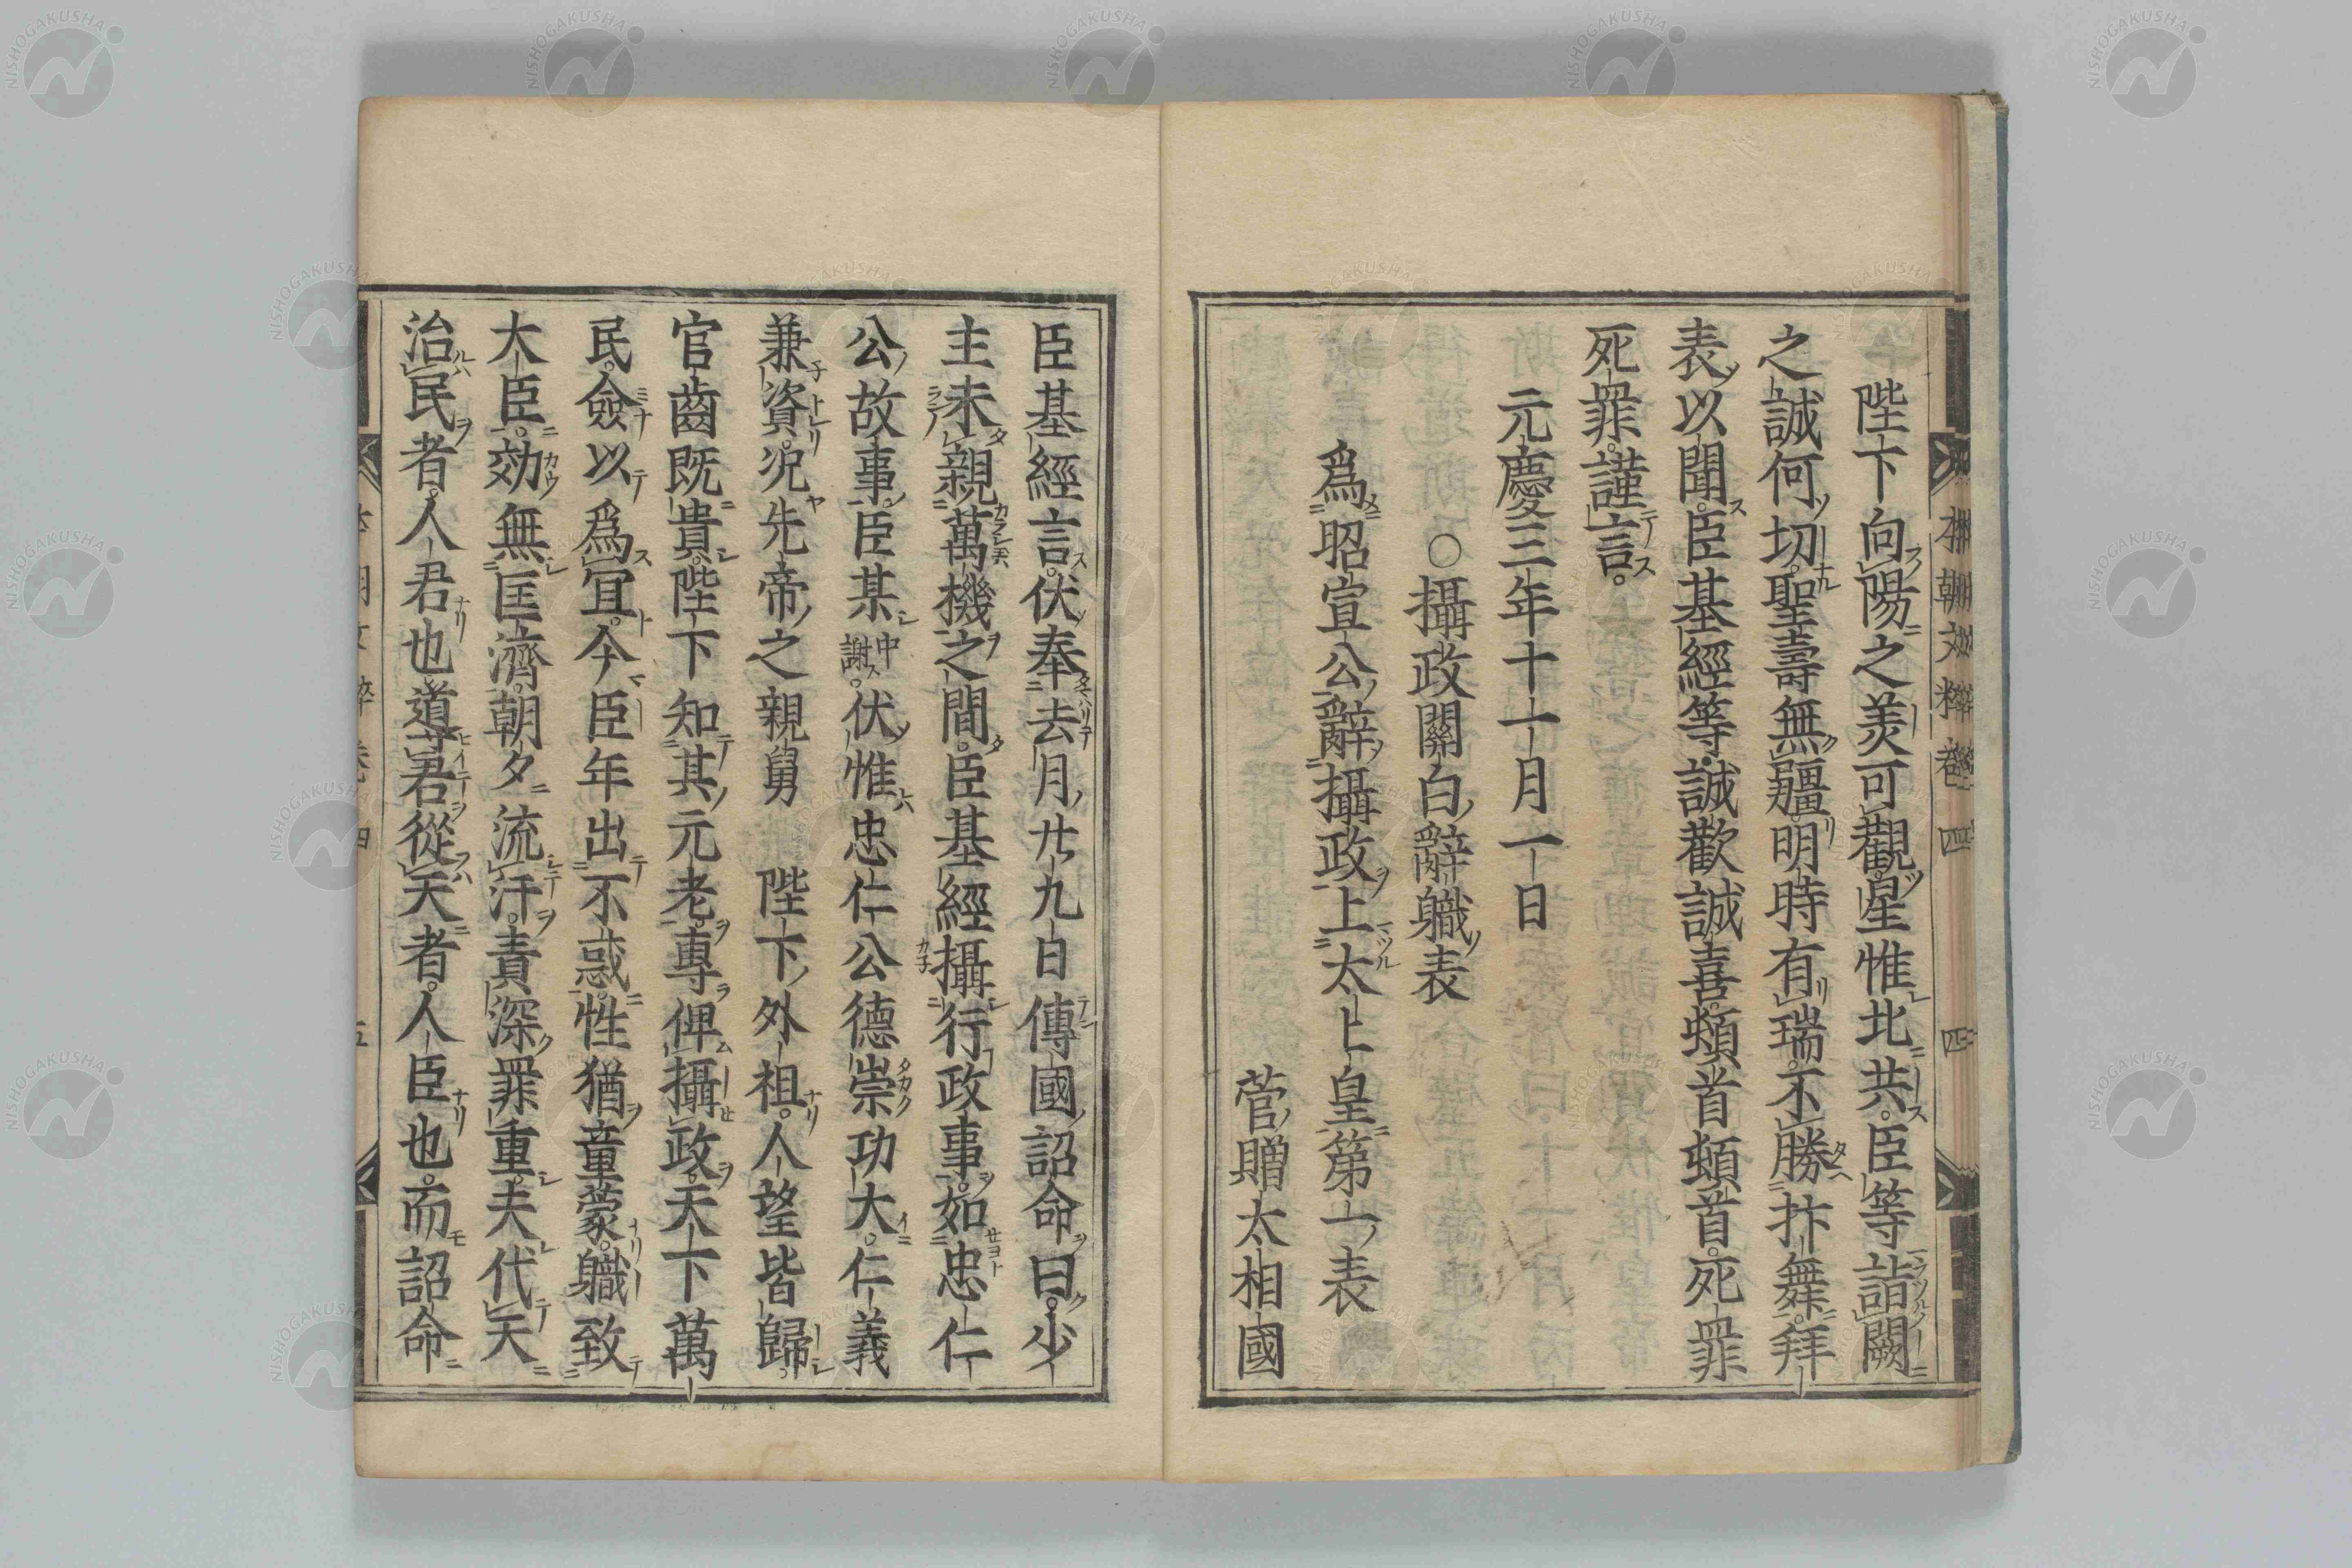 陛下向陽之美可觀星惟北共臣等詣闕
之誠何切聖壽無疆明時有瑞不勝抃舞拜
表以聞臣基經等誠歡誠喜頓首頓首死罪
死罪謹言
元慶三年十一月一日
○攝政關白辭職表
爲昭宣公辭攝政上太上皇第一表
菅贈太相國
臣基經言伏奉去月廿九日傳國詔命曰少
主未親萬機之間臣基經攝行政事如忠仁
公故事臣某中謝伏惟忠仁公德崇功大仁義
兼資況先帝之親舅 陛下外祖人望皆歸
官齒既貴陛下知其元老專俾攝政天下萬
民僉以爲宜今臣年出不惑性猶童蒙職致
大臣効無匡濟朝夕流汗責深罪重夫代天
治民者人君也道君從天者人臣也而詔命
本朝文粹卷四 四
NISHOGAKUSHA